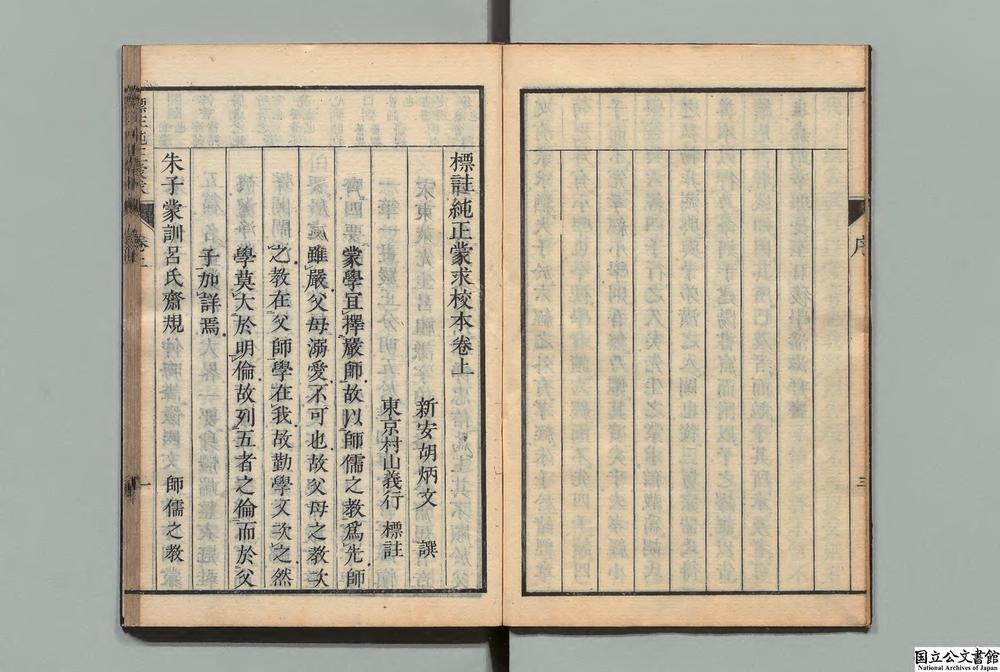 序
三
標註純正蒙求校本卷上
新安胡炳文 譔
東京村山義行 標註
蒙學宜擇嚴師故以師儒之教爲先師
雖嚴父母溺愛不可也故父母之教次
之教在父師學在我故勤學文次之然
學莫大於明倫故列五者之倫而於父
子加詳焉
朱子蒙訓呂氏齋規 師儒之教
標註純正蒙求
卷上
一
国立公文書館
National Archives of Japan